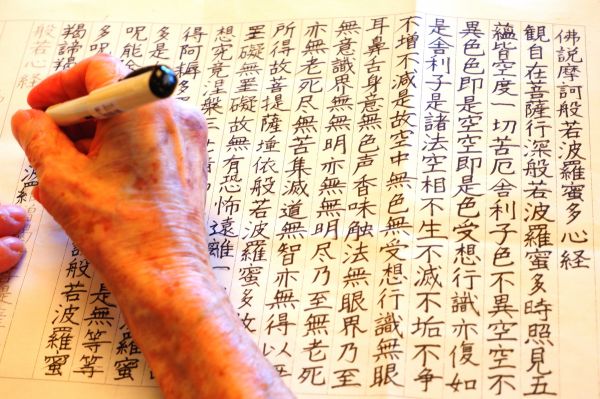 佛説摩訶般若波羅蜜多心経
観自在菩薩行深般若波羅蜜多時照見五
蘊皆空度一切苦厄舎利子色不異空空不
異色色即是空空即是色受想行識亦復如
是舎利子是諸法空相不生不滅不垢不争
不増不減是故空中無色無受想行識無眼
耳鼻舌身意無色声香味触法無眼界乃至
無意識界無無明亦無無明尽乃至無老死
亦無老死尽無苦集滅道無智亦無得以
所得故菩提薩埵依般若波羅蜜多故
罣礙無罣礙故無有恐怖遠離一
想究竟涅槃三
得阿耨多羅蜜
多是是無等等
呪能説般若波羅蜜
多呪
羯諦羯
般若心経